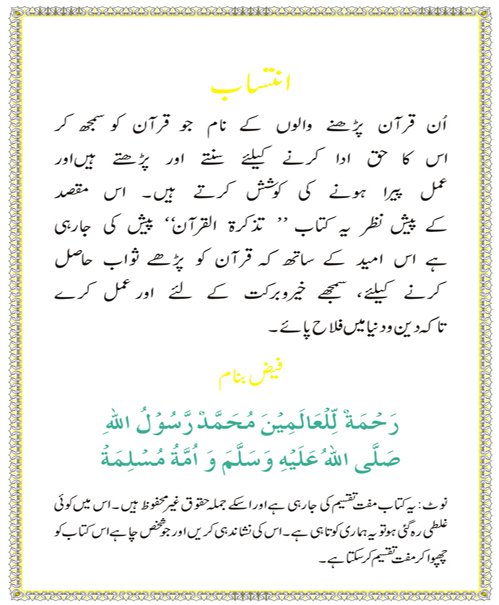 انتساب
اُن قرآن پڑھنے والوں کے نام جو قرآن کو سمجھ کر
اس کا حق ادا کرنے کیلئے سنتے اور پڑھتے ہیں اور
عمل پیرا ہونے کی کوشش کرتے ہیں۔ اس مقصد
کے پیش نظر یہ کتاب ’’ تذکرۃ القرآن‘‘ پیش کی جارہی
ہے اس امید کے ساتھ کہ قرآن کو پڑھے ثواب حاصل
کرنے کیلئے، سمجھے خیر و برکت کے لئے اور عمل کرے
تاکہ دین و دنیا میں فلاح پائے۔
فیض بنام
رَحْمَةٌ لِّلْعَالَمِيْنَ مُحَمَّدْ رَّسُوْلُ اللهِ
صَلَّى اللهُ عَلَيْهِ وَسَلَّمَ وَ اُمَّةُ مُسْلِمَةْ
نوٹ: یہ کتاب مفت تقسیم کی جارہی ہے اور اسکے جملہ حقوق غیر محفوظ ہیں۔ اس میں کوئی
غلطی رہ گئی ہو تو یہ ہماری کوتاہی ہے۔ اس کی نشاندہی کریں اور جو شخص چاہے اس کتاب کو
چھپوا کر مفت تقسیم کر سکتا ہے۔